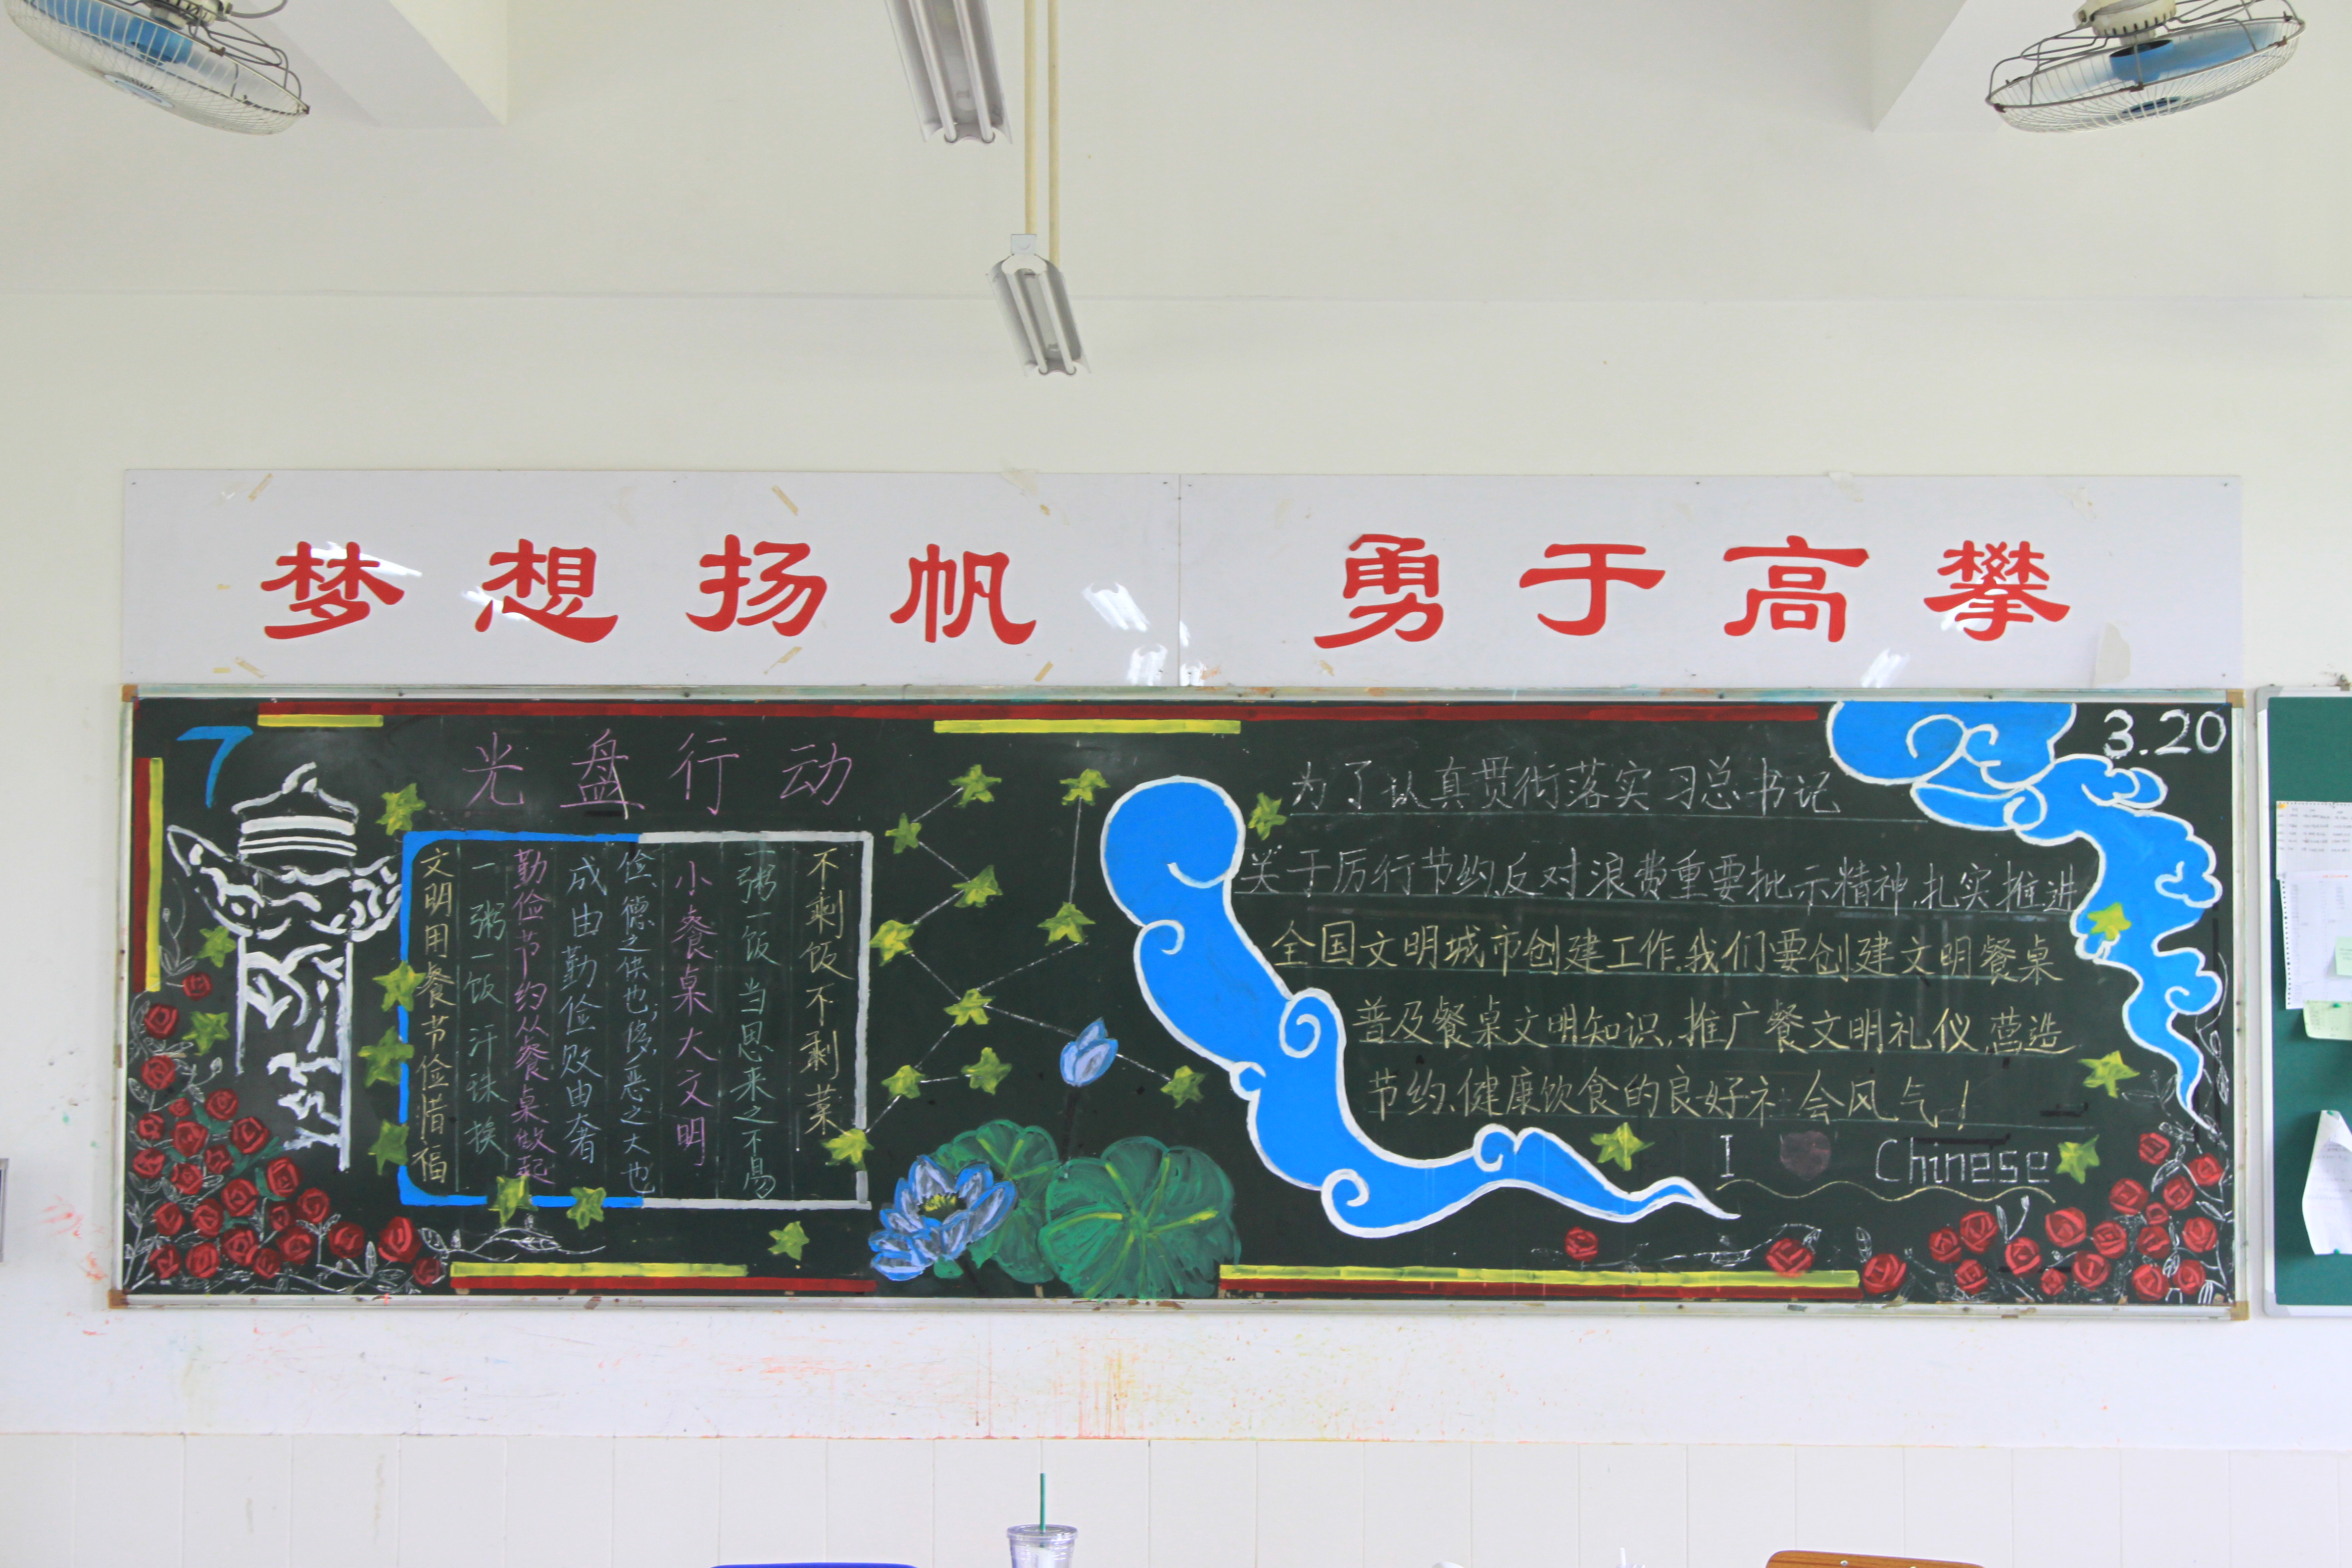 梦想扬帆 勇于高攀
7
光盘行动
不剩饭不剩菜
一粥一饭当思来之不易
小餐桌大文明
俭,德之共也;侈,恶之大也
成由勤俭败由奢
勤俭节约从餐桌做起
一粥一饭汗珠换
文明用餐节俭惜福
3.20
为了认真贯彻落实习总书记
关于厉行节约,反对浪费重要批示精神,扎实推进
全国文明城市创建工作.我们要创建文明餐桌
普及餐桌文明知识,推广餐文明礼仪,营造
节约、健康饮食的良好社会风气!
I Chinese